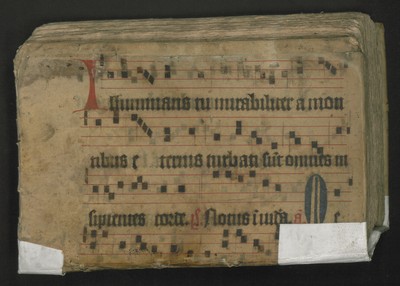 Illuminans tu mirabiliter a mon
tibus e ternis turbati sūt omnes in
sipientes corde. ps Notus ī iuda. a